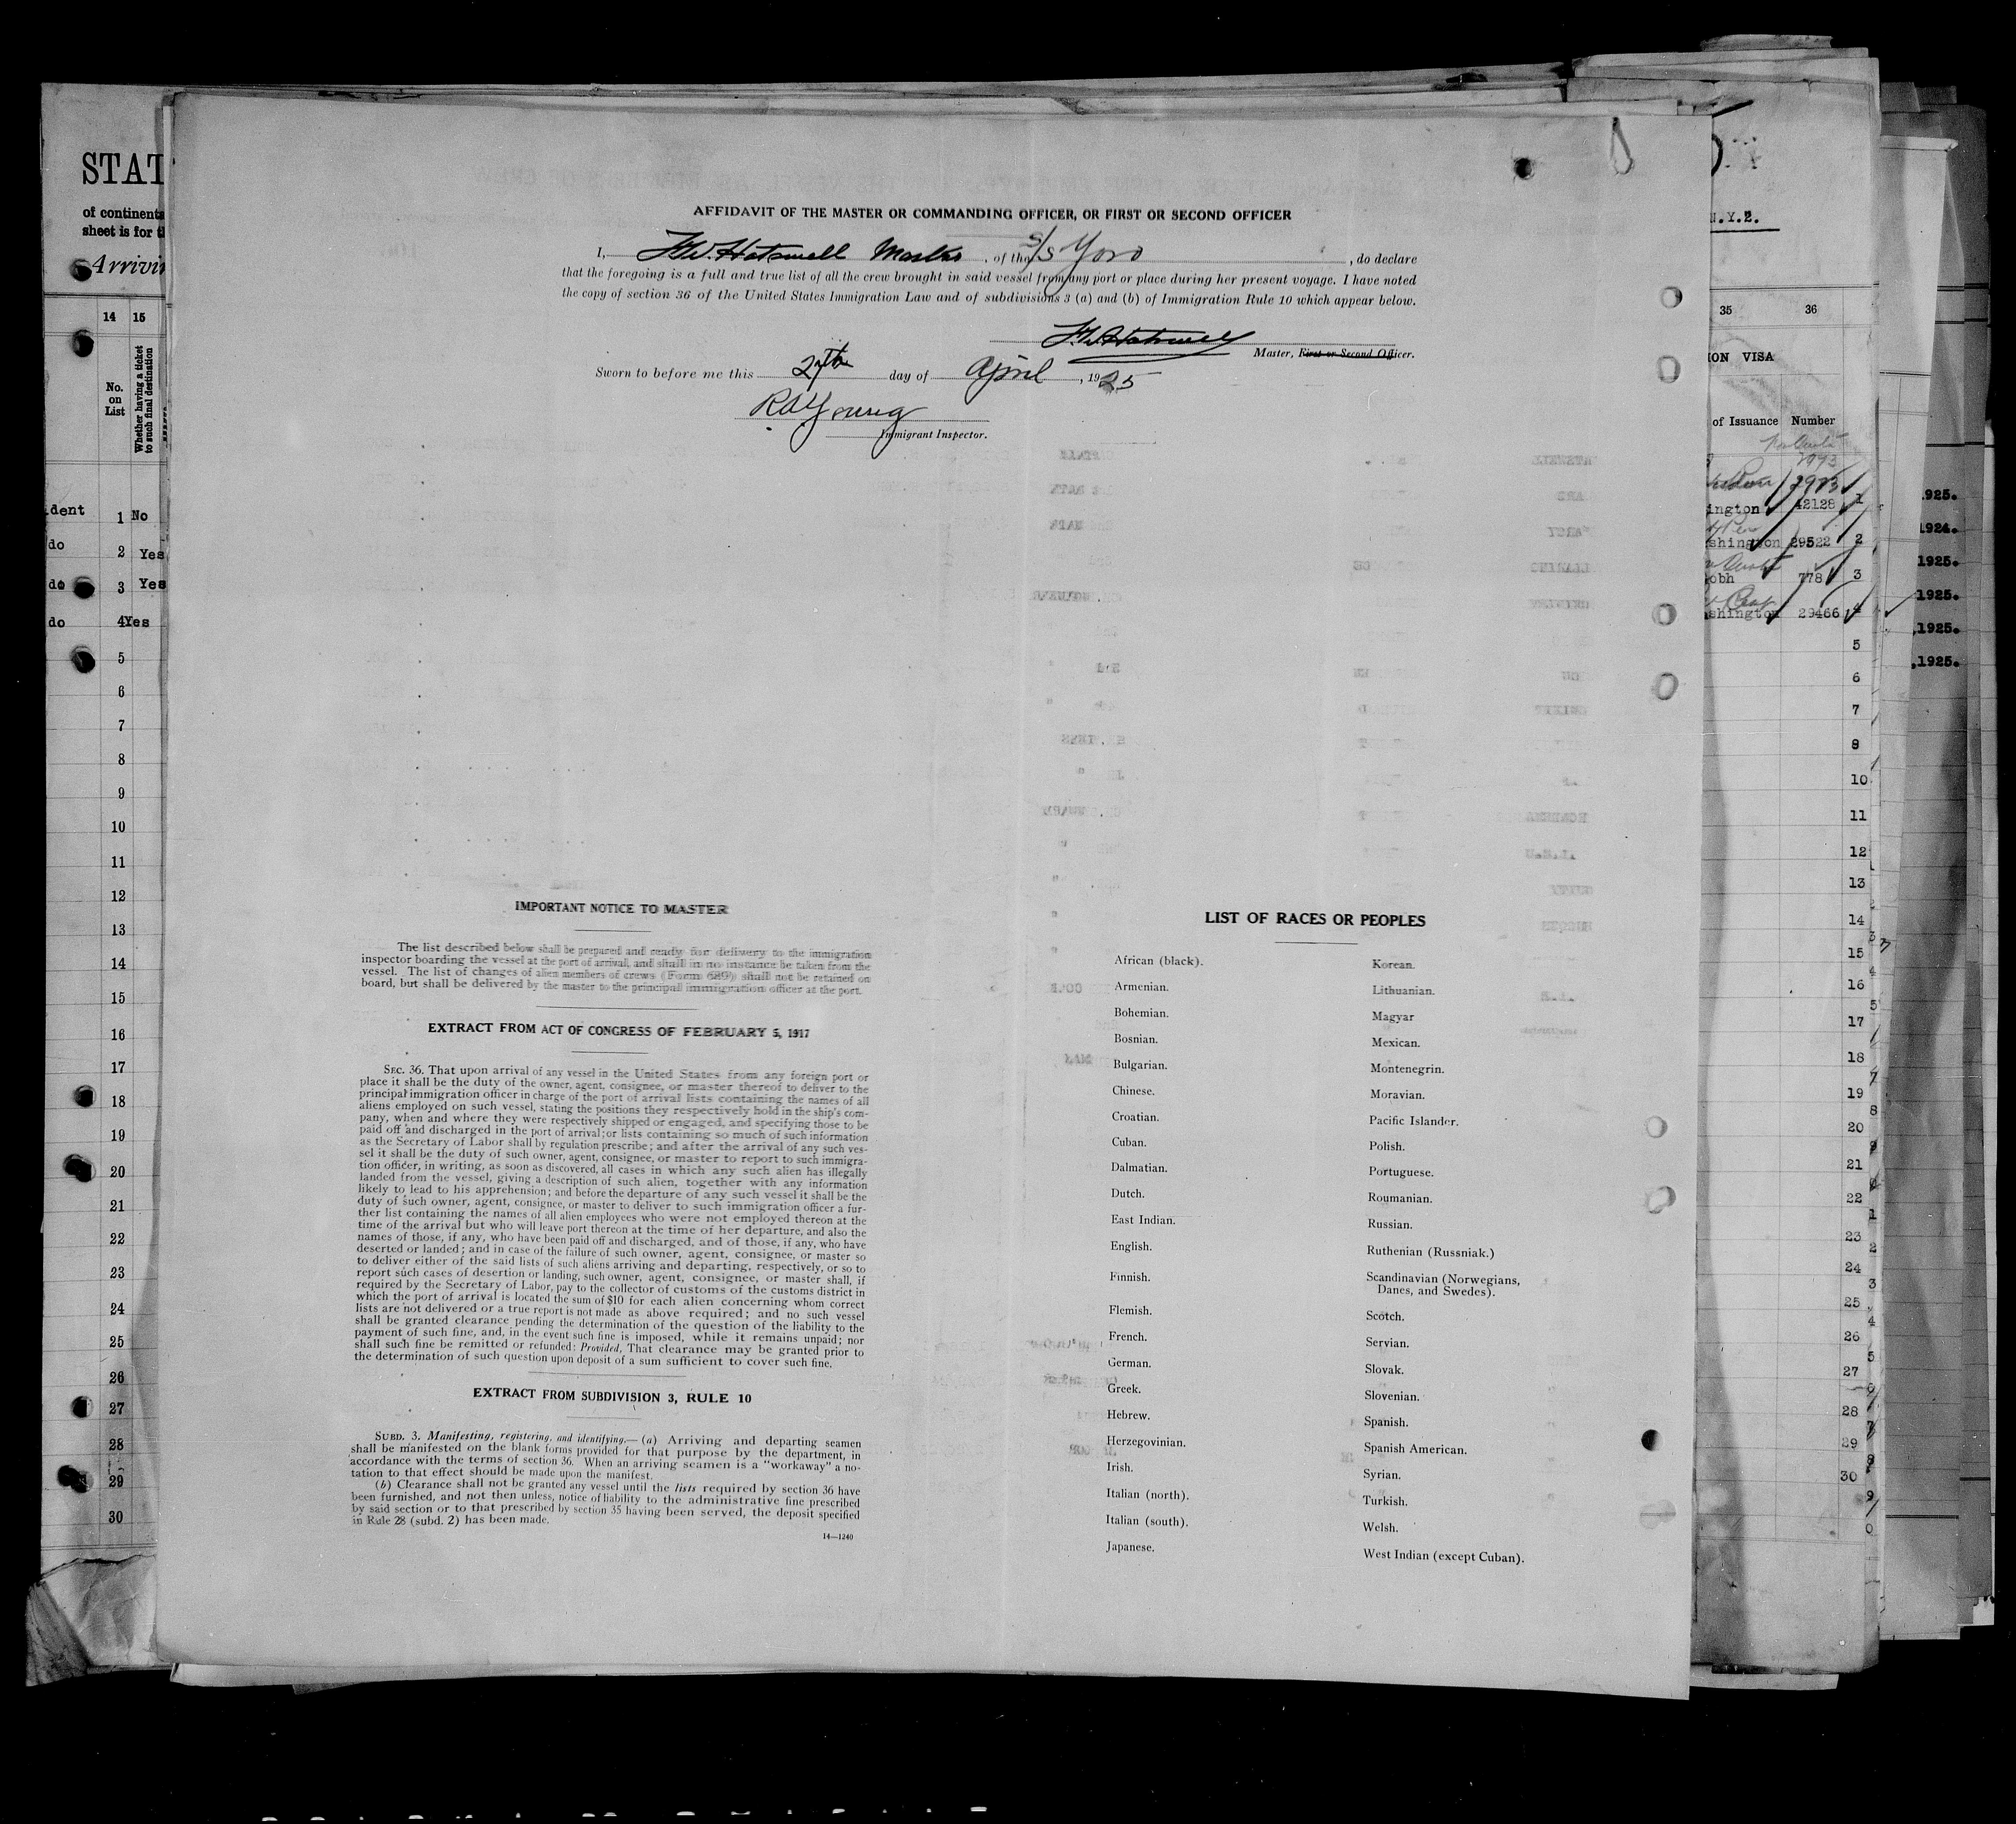 AFFIDAVIT OF THE MASTER OR COMMANDING OFFICER, OR FIRST OR SECOND OFFICER
I, F.W. Hatswell Master, of the S/S Yoro, do declare
that the foregoing is a full and true list of all the crew brought in said vessel from any port or place during her present voyage. I have noted
the copy of section 36 of the United States Immigration Law and of subdivisions 3 (a) and (b) of Immigration Rule 10 which appear below.
Master, First or Second Officer.
Sworn to before me this 27th day of April, 1925
R A Young
Immigrant Inspector.
IMPORTANT NOTICE TO MASTER
The list described below shall be prepared and ready for delivery to the immigration
inspector boarding the vessel at the port of arrival, and shall in no instance be taken from the
vessel. The list of changes of alien members of crews (Form 689) shall not be retained on
board, but shall be delivered by the master to the principal immigration officer at the port.
EXTRACT FROM ACT OF CONGRESS OF FEBRUARY 5, 1917
SEC. 36. That upon arrival of any vessel in the United States from any foreign port or
place it shall be the duty of the owner, agent, consignee, or master thereof to deliver to the
principal immigration officer in charge of the port of arrival lists containing the names of all
aliens employed on such vessel, stating the positions they respectively hold in the ship's com-
pany, when and where they were respectively shipped or engaged, and specifying those to be
paid off and discharged in the port of arrival; or lists containing so much of such information
as the Secretary of Labor shall by regulation prescribe; and after the arrival of any such ves-
sel it shall be the duty of such owner, agent, consignee, or master to report to such immigra-
tion officer, in writing, as soon as discovered, all cases in which any such alien has illegally
landed from the vessel, giving a description of such alien, together with any information
likely to lead to his apprehension; and before the departure of any such vessel it shall be the
duty of such owner, agent, consignee, or master to deliver to such immigration officer a fur-
ther list containing the names of all alien employees who were not employed thereon at the
time of the arrival but who will leave port thereon at the time of her departure, and also the
names of those, if any, who have been paid off and discharged, and of those, if any, who have
deserted or landed; and in case of the failure of such owner, agent, consignee, or master so
to deliver either of the said lists of such aliens arriving and departing, respectively, or so to
report such cases of desertion or landing, such owner, agent, consignee, or master shall, if
required by the Secretary of Labor, pay to the collector of customs of the customs district in
which the port of arrival is located the sum of $10 for each alien concerning whom correct
lists are not delivered or a true report is not made as above required; and no such vessel
shall be granted clearance pending the determination of the question of the liability to the
payment of such fine, and, in the event such fine is imposed, while it remains unpaid; nor
shall such fine be remitted or refunded: Provided, That clearance may be granted prior to
the determination of such question upon deposit of a sum sufficient to cover such fine.
EXTRACT FROM SUBDIVISION 3, RULE 10
SUBD. 3. Manifesting, registering, and identifying.—(a) Arriving and departing seamen
shall be manifested on the blank forms provided for that purpose by the department, in
accordance with the terms of section 36. When an arriving seamen is a "workaway" a no-
tation to that effect should be made upon the manifest.
(b) Clearance shall not be granted any vessel until the lists required by section 36 have
been furnished, and not then unless, notice of liability to the administrative fine prescribed
by said section or to that prescribed by section 35 having been served, the deposit specified
in Rule 28 (subd. 2) has been made.
14—1240
LIST OF RACES OR PEOPLES
African (black).
Armenian.
Bohemian.
Bosnian.
Bulgarian.
Chinese.
Croatian.
Cuban.
Dalmatian.
Dutch.
East Indian.
English.
Finnish.
Flemish.
French.
German.
Greek.
Hebrew.
Herzegovinian.
Irish.
Italian (north).
Italian (south).
Japanese.
Korean.
Lithuanian.
Magyar
Mexican.
Montenegrin.
Moravian.
Pacific Islander.
Polish.
Portuguese.
Roumanian.
Russian.
Ruthenian (Russniak.)
Scandinavian (Norwegians,
Danes, and Swedes).
Scotch.
Servian.
Slovak.
Slovenian.
Spanish.
Spanish American.
Syrian.
Turkish.
Welsh.
West Indian (except Cuban).
STAT
of continenta
sheet is for t
Arrivin
14 15
No.
on
List
Whether having a ticket
to such final destination
dent 1 No
do 2 Yes
do 3 Yes
do 4 Yes
5
6
7
8
9
10
11
12
13
14
15
16
17
18
19
20
21
22
23
24
25
26
27
28
29
30
N.Y.E.
35 36
ION VISA
of Issuance Number
ington 42128 1
shington 29522 2
obh 778 3
shington 29466 4
5
6
7
8
10
11
12
13
14
15
16
17
18
19
20
21
22
23
24
25
26
27
28
29
30
1925.
1924.
1925.
1925.
,1925.
,1925.